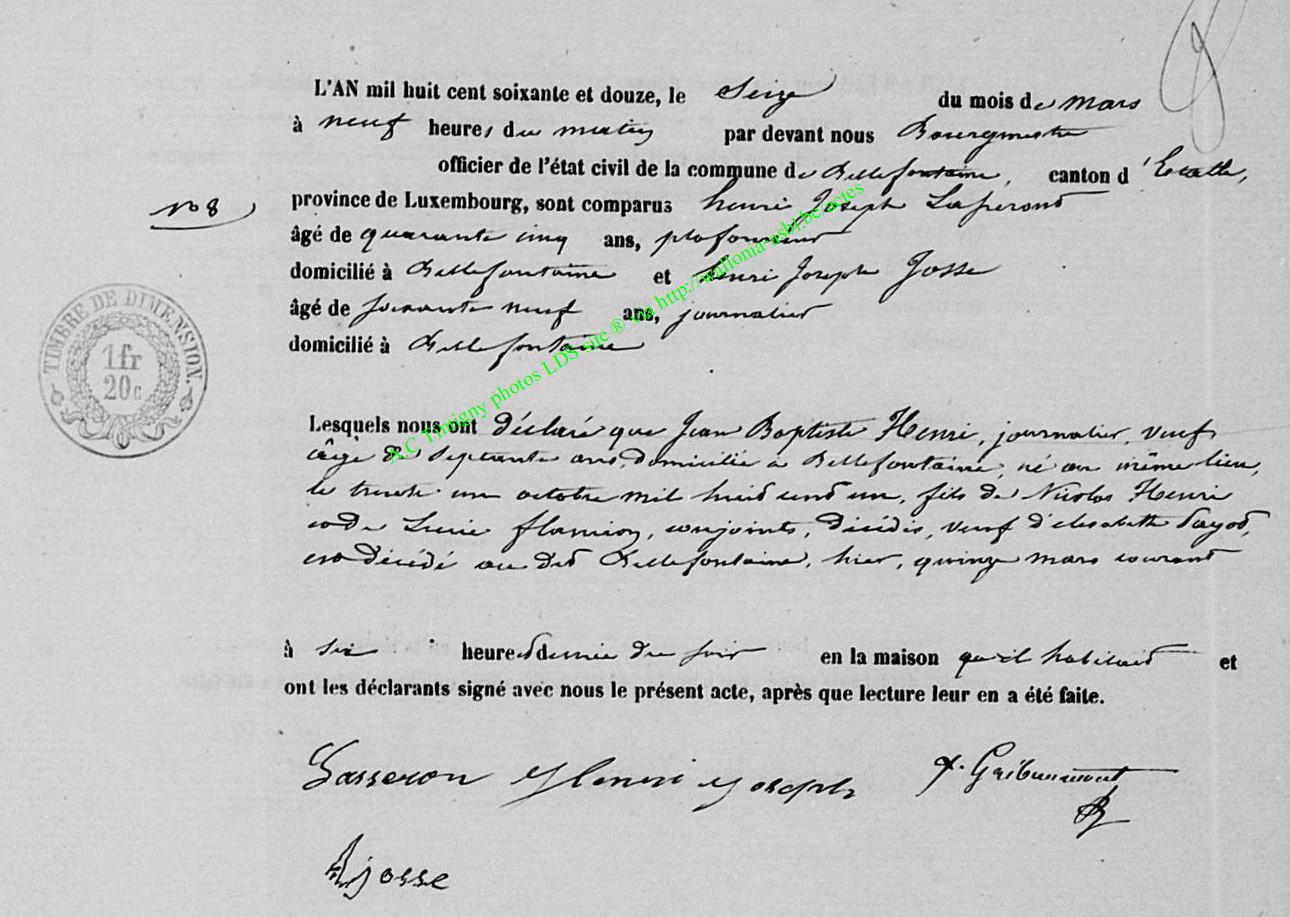 L'AN mil huit cent soixante et douze, le Seize du mois de mars
à neuf heures du matin par devant nous Bourgmestre
officier de l'état civil de la commune de Bellefontaine, canton d'Etalle,
N° 8
province de Luxembourg, sont comparus henri Joseph
âgé de quarante cinq ans, plafonneur
domicilié à Bellefontaine et henri Joseph Josse
âgé de soixante neuf ans, journalier
domicilié à Bellefontaine
TIMBRE DE DIMENSION.
1 fr
20 c
A.C Tintigny photos LDS site ® via http://walloma-asbl.be/actes
Lesquels nous ont déclaré que Jean Baptiste Henri, journalier, veuf
âgé de Septante ans, domicilié à Bellefontaine, né au même lieu,
le trente un octobre mil huit cent un, fils de Nicolas Henri
et de Lucie flamion, conjoints, décédés, veuf d'élisabeth
est décédé au dit Bellefontaine, hier, quinze mars courant
à six heures demie du soir en la maison qu'il habitait et
ont les déclarants signé avec nous le présent acte, après que lecture leur en a été faite.
Lasseron Henri Joseph
josse